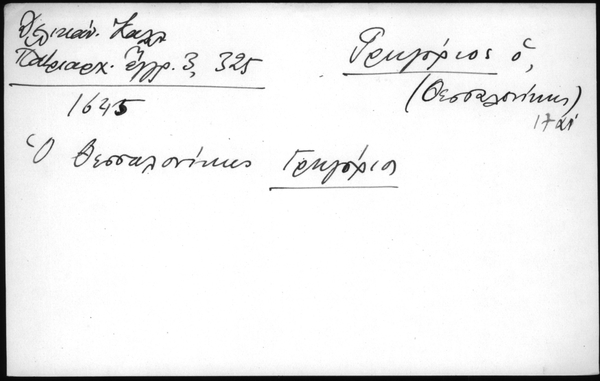 Δελικάν. Καλλ
Πατριαρχ. Έγγρ. 3, 325
1645
Γρηγόριος ὁ,
(Θεσσαλονίκης)
Ὁ Θεσσαλονίκης Γρηγόριος